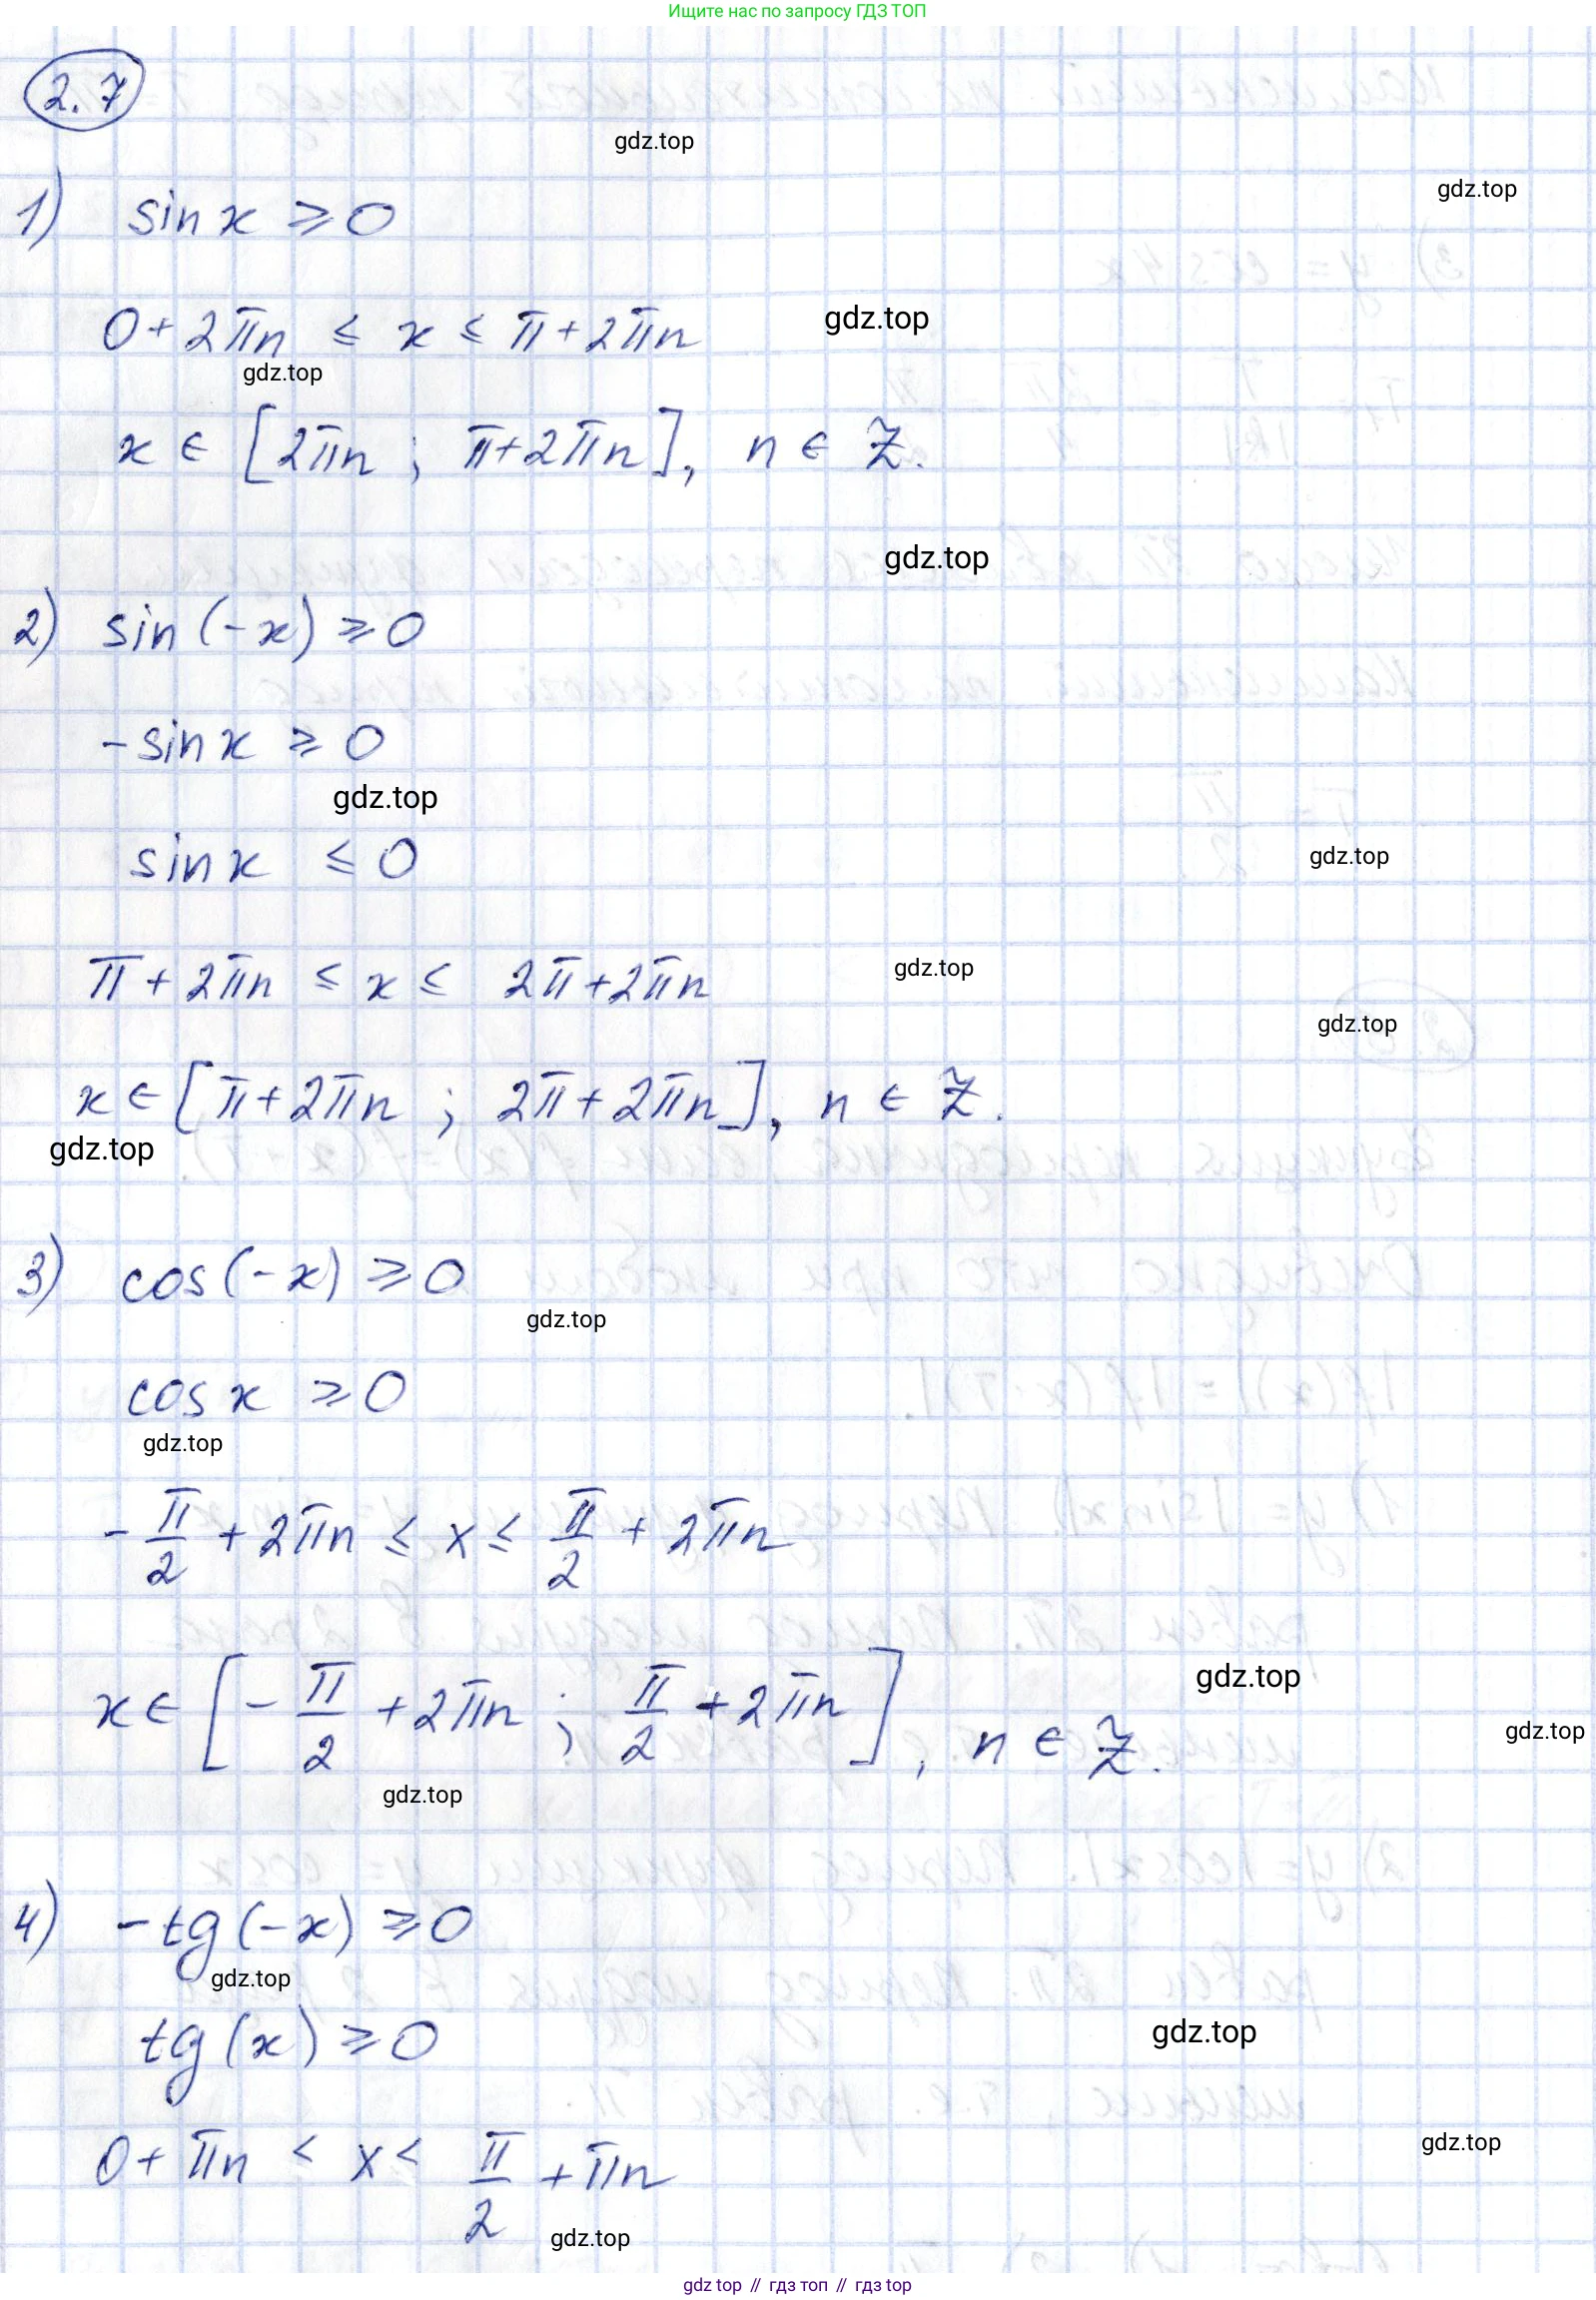 Ищите нас по запросу ГДЗ ТОП
2.7
gdz.top
gdz.top
1) sin x ⩾ 0
0 + 2πn ≤ x ≤ π + 2πn
gdz.top
gdz.top
x ∈ [2πn ; π+2πn], n ∈ Z.
gdz.top
2) sin (-x) ⩾ 0
-sin x ⩾ 0
gdz.top
sin x ≤ 0
gdz.top
π + 2πn ≤ x ≤ 2π + 2πn
gdz.top
gdz.top
x ∈ [π + 2πn ; 2π + 2πn], n ∈ Z.
gdz.top
3) cos (-x) ⩾ 0
gdz.top
cos x ⩾ 0
gdz.top
- π/2 + 2πn ≤ x ≤ π/2 + 2πn
x ∈ [- π/2 + 2πn ; π/2 + 2πn], n ∈ Z.
gdz.top
gdz.top
gdz.top
4) -tg (-x) ⩾ 0
gdz.top
tg (x) ⩾ 0
gdz.top
0 + πn < x < π/2 + πn
gdz.top
gdz.top
gdz top // гдз топ // gdz top